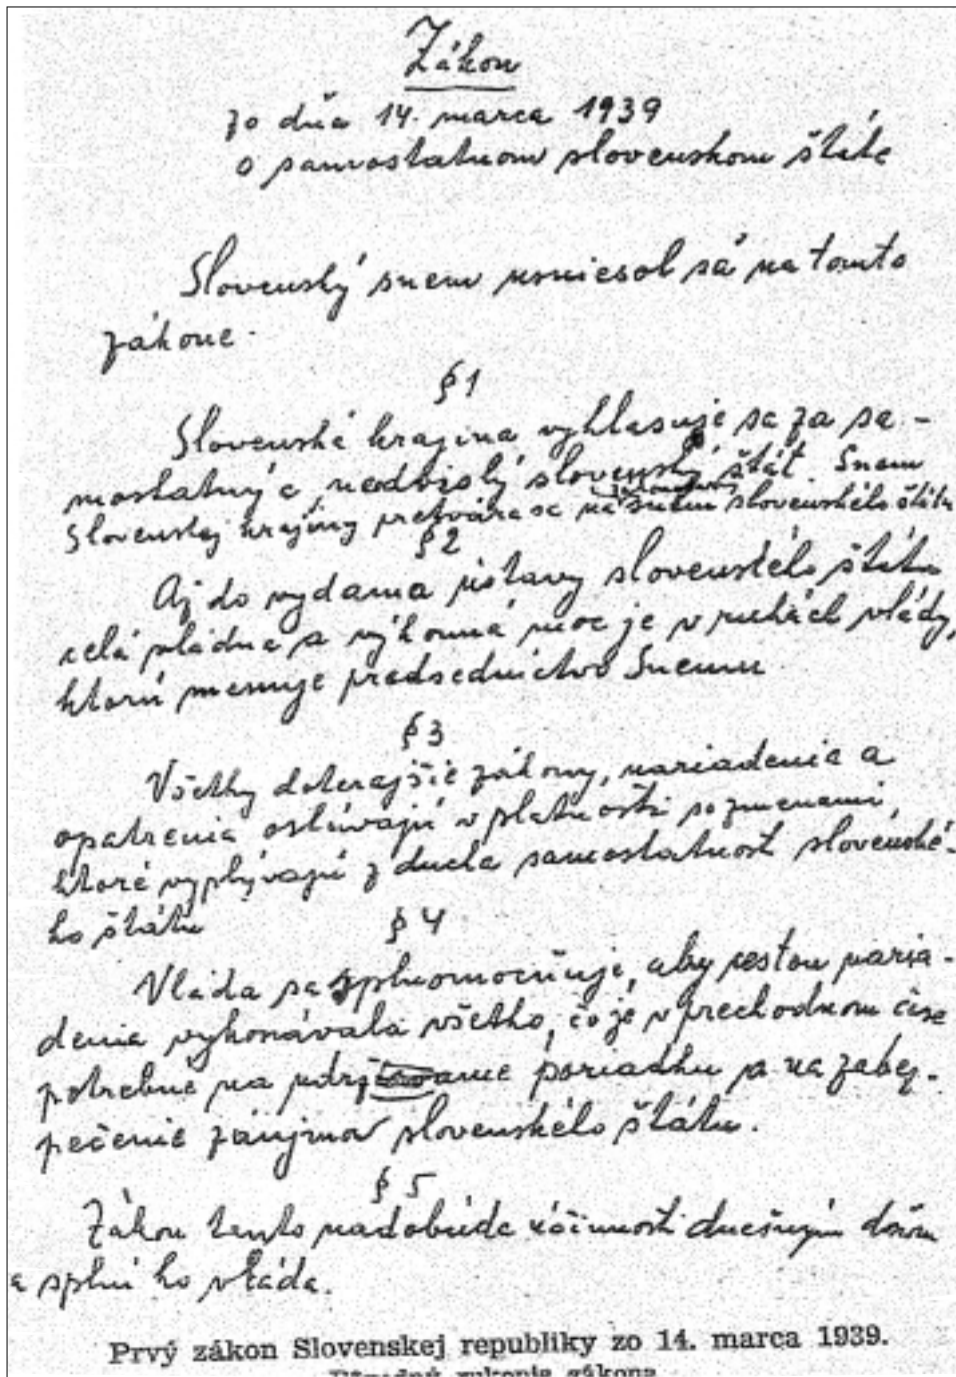 Zákon
zo dňa 14. marca 1939
o samostatnom slovenskom štáte
Slovenský snem usniesol sa na tomto
zákone.
§ 1
Slovenská krajina vyhlasuje sa za sa-
mostatný a neodvislý slovenský štát. Snem
Slovenskej krajiny pretvára sa na snem slovenského štátu
§ 2
Až do vydania ústavy slovenského štátu
celá vládna a výkonná moc je v rukách vlády,
ktorú menuje predsedníctvo Snemu
§ 3
Všetky doterajšie zákony, nariadenia a
opatrenia ostávajú v platnosti so zmenami,
ktoré vyplývajú z ducha samostatnosti slovenské-
ho štátu
§ 4
Vláda sa splnomocňuje, aby cestou naria-
denia vykonávala všetko, čo je v prechodnom čase
potrebné na udržanie poriadku a na zabez-
pečenie záujmov slovenského štátu.
§ 5
Zákon tento nadobúda účinnosti dnešným dňom
a splní ho vláda.
Prvý zákon Slovenskej republiky zo 14. marca 1939.
rukopis zákona